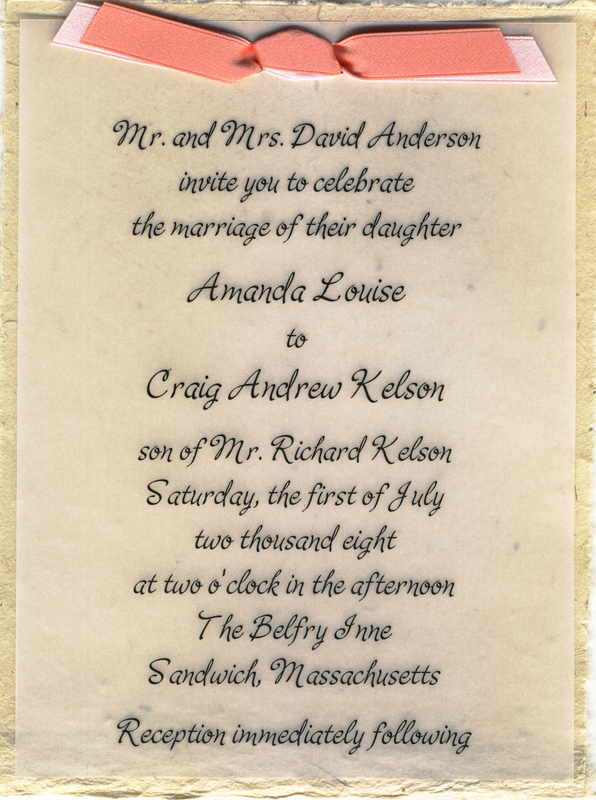 Mr. and Mrs. David Anderson
invite you to celebrate
the marriage of their daughter
Amanda Louise
to
Craig Andrew Kelson
son of Mr. Richard Kelson
Saturday, the first of July
two thousand eight
at two o'clock in the afternoon
The Belfry Inne
Sandwich, Massachusetts
Reception immediately following